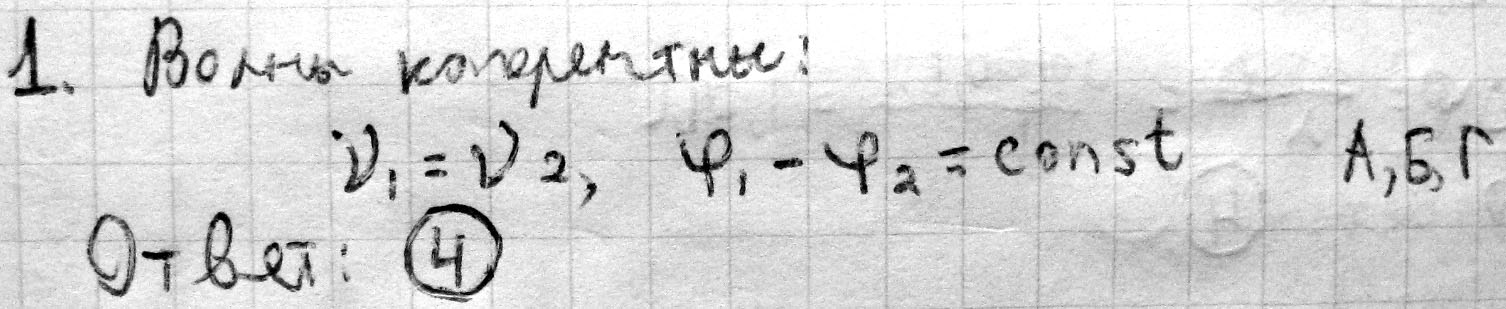 1. Волны когерентны:
ν₁ = ν₂, φ₁ - φ₂ = const А, Б, Г
Ответ: 4